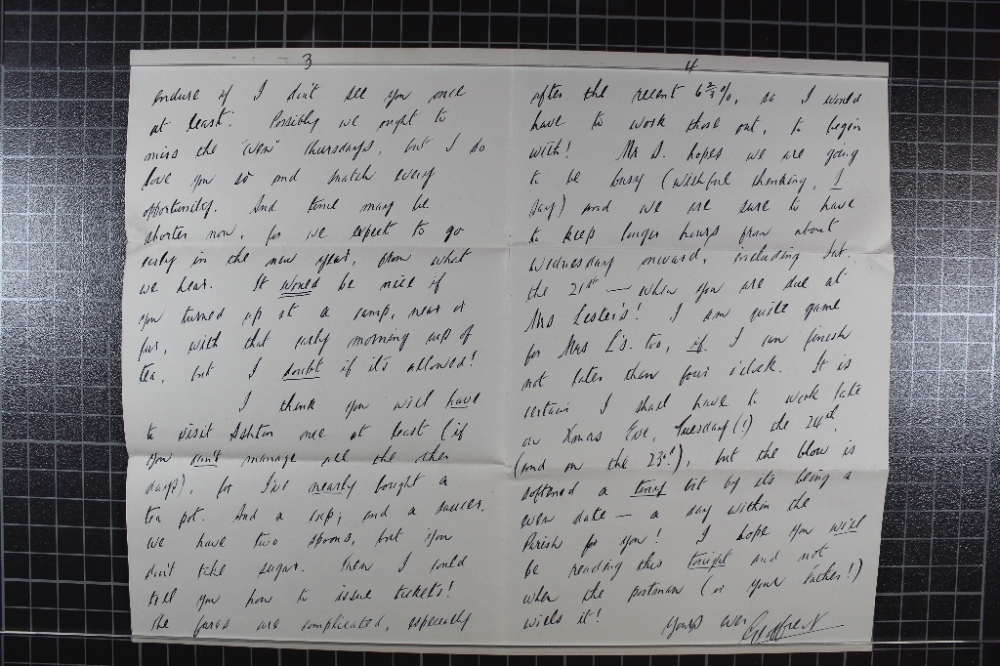 3
endure if I don't see you once
at least. Possibly we ought to
miss the "even" Thursdays, but I do
love you so and snatch every
opportunity. And time may be
shorter now, for we expect to go
early in the new year, from what
we hear. It would be nice if
you turned up at a camp, near or
far, with that early morning cup of
tea, but I doubt if it's allowed!
I think you will have
to visit Ashton once at least (if
you can't manage all the other
days), for I've nearly bought a
tea pot. And a cup; and a saucer.
We have two spoons, but you
don't take sugar. Then I could
tell you how to issue tickets!
The fares are complicated, especially
4
after the recent 6¾%, so I would
have to work those out, to begin
with! Mr S. hopes we are going
to be busy (wishful thinking, I
say) and we are sure to have
to keep longer hours from about
Wednesday onward, including Sat.
the 21st — when you are due at
Mrs Leslie's! I am quite game
for Mrs L's. too, if I can finish
not later than four o'clock. It is
certain I shall have to work late
on Xmas Eve, Tuesday (!) the 24th.
(and on the 23rd!), but the blow is
softened a tiny bit by its being a
even date — a day within the
Parish for you! I hope you will
be reading this tonight and not
when the postman (or your father!)
wills it!
Yours ever